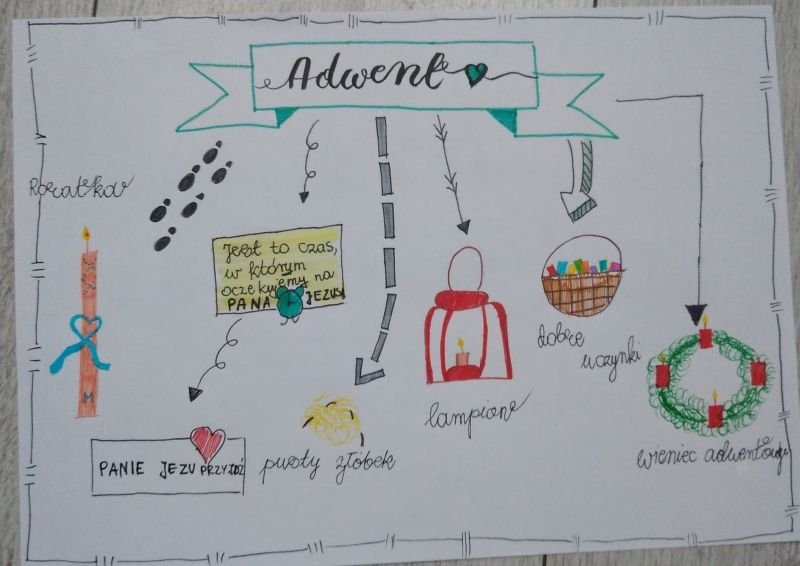 Adwent
Roratka
Jest to czas,
w którym
oczekujemy na
PANA JEZUSA
M
PANIE JEZU PRZYJDŹ
pusty żłóbek
lampion
dobre
uczynki
wieniec adwentowy